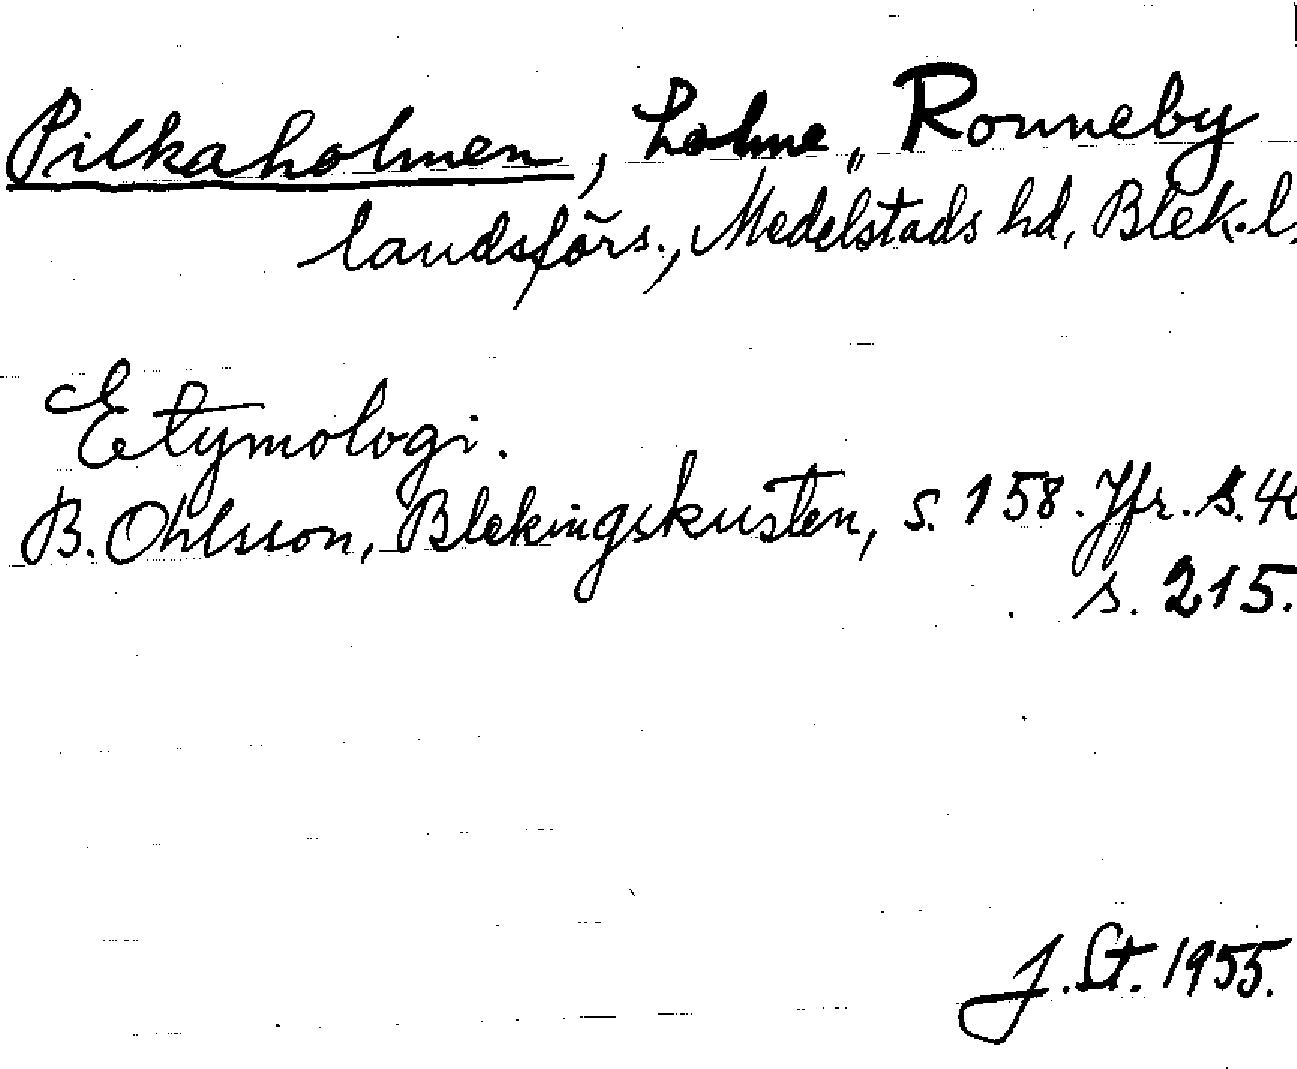 Pilkaholmen, holme, Ronneby
landsförs., Medelstads hd, Blek. l.
Etymologi.
B. Ohlsson, Blekingskusten, s. 158. Jfr. s. 40
s. 215.
J. St. 1955.